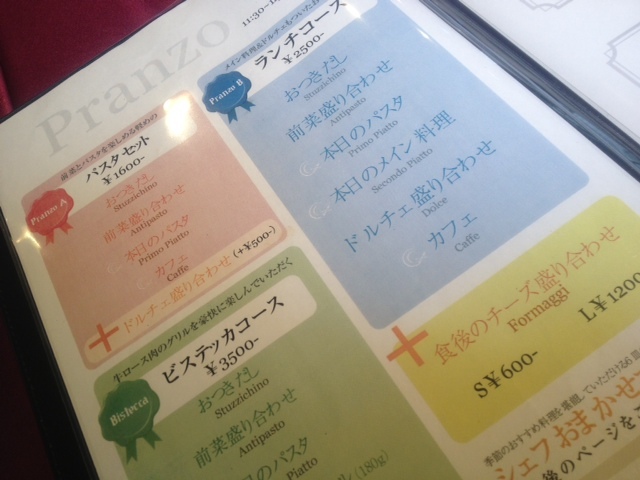 Pranzo
11:30~1
前菜とパスタを楽しめる
パスタセット
¥1600-
Pranzo A
おつきだし
Stuzzichino
前菜盛り合わせ
Antipasto
本日のパスタ
Primo Piatto
カフェ
Caffe
+ドルチェ盛り合わせ (+¥500-)
メイン料理&ドルチェもついた
ランチコース
¥2500-
Pranzo B
おつきだし
Stuzzichino
前菜盛り合わせ
Antipasto
本日のパスタ
Primo Piatto
本日のメイン料理
Secondo Piatto
ドルチェ盛り合わせ
Dolce
カフェ
Caffe
牛ロース肉のグリルを豪快に楽しんでいただく
ビステッカコース
¥3500-
Bistecca
おつきだし
Stuzzichino
前菜盛り合わせ
Antipasto
本日のパスタ
Piatto
(180g)
+食後のチーズ盛り合わせ
Formaggi
S¥600-
L¥1200
季節のおすすめ料理を堪能していただける6
シェフおまかせ
後のページを